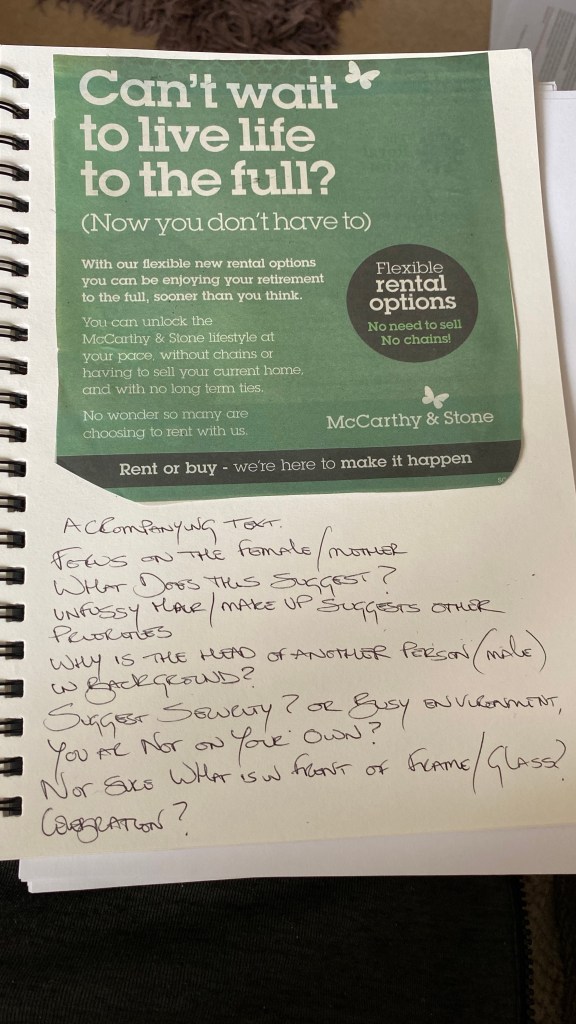 Can't wait
to live life
to the full?
(Now you don't have to)
With our flexible new rental options
you can be enjoying your retirement
to the full, sooner than you think.
You can unlock the
McCarthy & Stone lifestyle at
your pace, without chains or
having to sell your current home,
and with no long term ties.
No wonder so many are
choosing to rent with us.
Flexible
rental
options
No need to sell
No chains!
McCarthy & Stone
Rent or buy - we're here to make it happen
ACCOMPANYING TEXT.
FOCUS ON THE FEMALE/MOTHER
WHAT DOES THIS SUGGEST?
UNFUSSY HAIR/MAKE UP SUGGESTS OTHER
PRIORITIES
WHY IS THE HEAD OF ANOTHER PERSON (MALE)
IN BACKGROUND?
SUGGEST SECURITY? OR BUSY ENVIRONMENT,
YOU ARE NOT ON YOUR OWN?
NOT SURE WHAT IS IN FRONT OF FRAME/GLASS?
CELEBRATION?